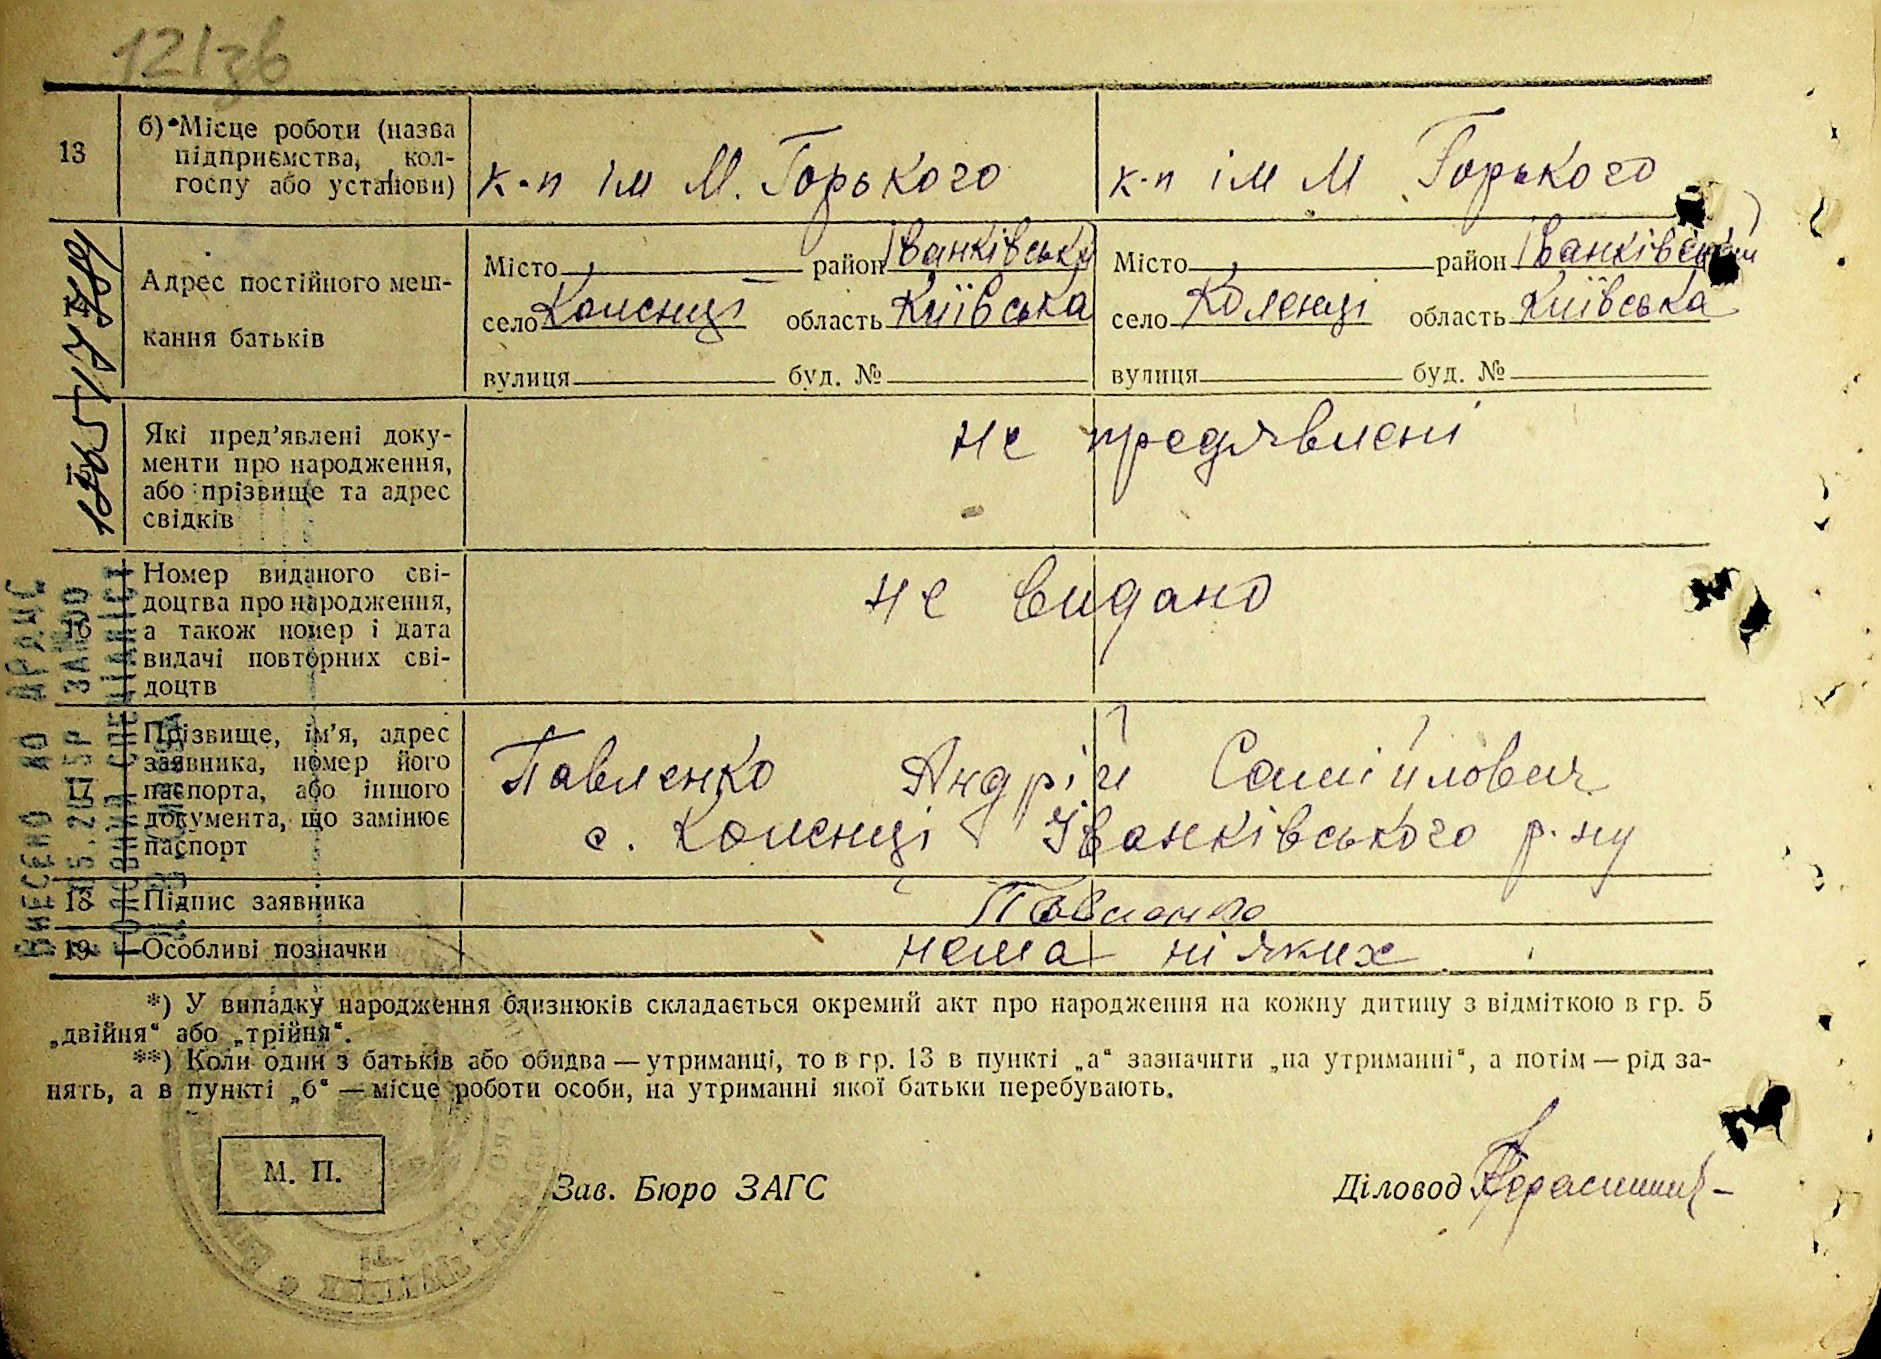 13
б)*Місце роботи (назва
підприємства, кол-
госпу або установи)
к-п ім М. Горького
к-п ім М Горького
Адрес постійного меш-
кання батьків
Місто район Іванківськи
село Коленці область Київська
вулиця буд. №
Місто район Іванківський
село Коленці область Київська
вулиця буд. №
Які пред’явлені доку-
менти про народження,
або прізвище та адрес
свідків
не предявлені
16
Номер виданого сві-
доцтва про народження,
а також номер і дата
видачі повторних сві-
доцтв
не видано
17
Прізвище, ім’я, адрес
заявника, номер його
паспорта, або іншого
документа, що замінює
паспорт
Павленко Андрій Самійлович
с. Коленці Іванківського р-ну
18
Підпис заявника
Павленко
19
Особливі позначки
нема ніяких
*) У випадку народження близнюків складається окремий акт про народження на кожну дитину з відміткою в гр. 5
„двійня“ або „трійня“.
**) Коли один з батьків або обидва — утриманці, то в гр. 13 в пункті „а“ зазначити „на утриманні“, а потім — рід за-
нять, а в пункті „б“ — місце роботи особи, на утриманні якої батьки перебувають.
М. П.
Зав. Бюро ЗАГС
Діловод
ВНЕСЕНО ДО ДРАЦС